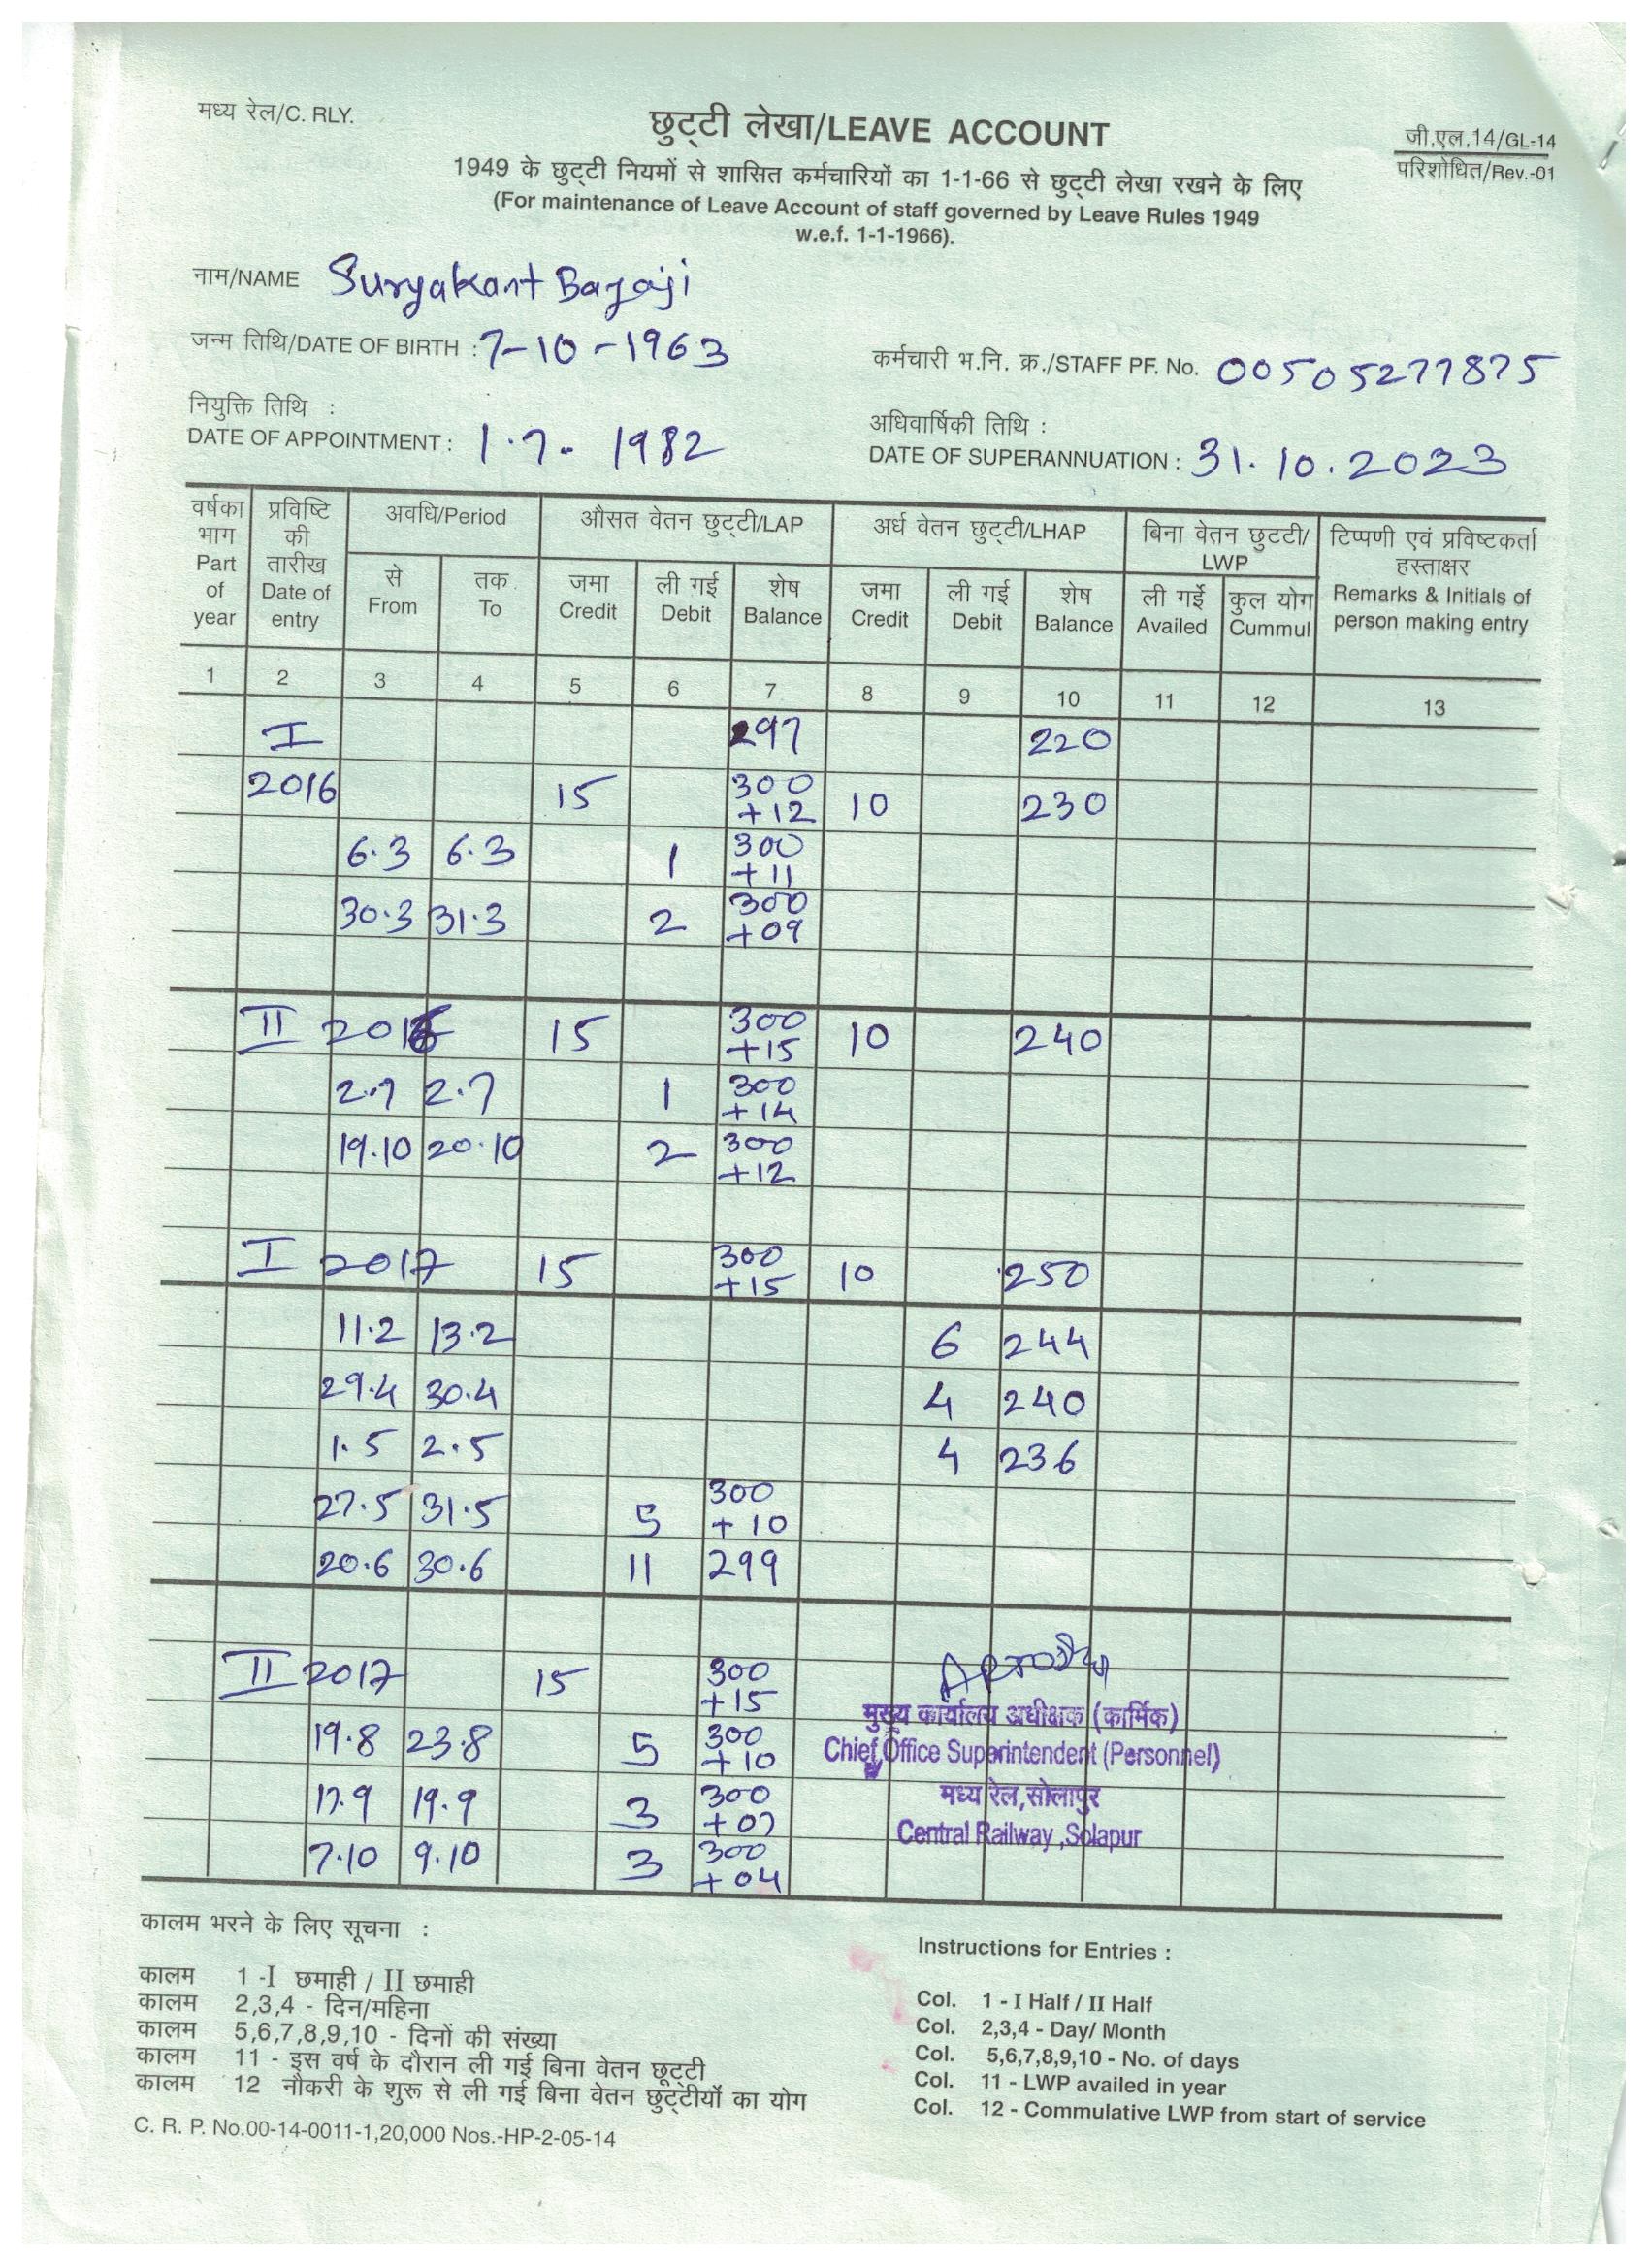 मध्य रेल/C. RLY.
छुट्टी लेखा/LEAVE ACCOUNT
जी.एल.14/GL-14
परिशोधित/Rev.-01
1949 के छुट्टी नियमों से शासित कर्मचारियों का 1-1-66 से छुट्टी लेखा रखने के लिए
(For maintenance of Leave Account of staff governed by Leave Rules 1949
w.e.f. 1-1-1966).
नाम/NAME Suryakant Bajaji
जन्म तिथि/DATE OF BIRTH : 7-10-1963
कर्मचारी भ.नि. क्र./STAFF PF. No. 00505277875
नियुक्ति तिथि :
DATE OF APPOINTMENT : 1.7. 1982
अधिवार्षिकी तिथि :
DATE OF SUPERANNUATION : 31.10.2023
वर्षका भाग Part of year
प्रविष्टि की तारीख Date of entry
अवधि/Period
औसत वेतन छुट्टी/LAP
अर्ध वेतन छुट्टी/LHAP
बिना वेतन छुटटी/ LWP
टिप्पणी एवं प्रविष्टकर्ता हस्ताक्षर Remarks & Initials of person making entry
से From
तक To
जमा Credit
ली गई Debit
शेष Balance
जमा Credit
ली गई Debit
शेष Balance
ली गई Availed
कुल योग Cummul
1 2 3 4 5 6 7 8 9 10 11 12 13
I 297 220
2016 15 300 +12 10 230
6.3 6.3 1 300 +11
30.3 31.3 2 300 +09
II 2016 15 300 +15 10 240
2.7 2.7 1 300 +14
19.10 20.10 2 300 +12
I 2017 15 300 +15 10 250
11.2 13.2 6 244
29.4 30.4 4 240
1.5 2.5 4 236
27.5 31.5 5 300 +10
20.6 30.6 11 299
II 2017 15 300 +15
19.8 23.8 5 300 +10
17.9 19.9 3 300 +07
7.10 9.10 3 300 +04
मुख्य कार्यालय अधीक्षक (कार्मिक)
Chief Office Superintendent (Personnel)
मध्य रेल, सोलापुर
Central Railway, Solapur
कालम भरने के लिए सूचना :
कालम 1 -I छमाही / II छमाही
कालम 2,3,4 - दिन/महिना
कालम 5,6,7,8,9,10 - दिनों की संख्या
कालम 11 - इस वर्ष के दौरान ली गई बिना वेतन छूट्टी
कालम 12 नौकरी के शुरू से ली गई बिना वेतन छुट्टीयों का योग
C. R. P. No.00-14-0011-1,20,000 Nos.-HP-2-05-14
Instructions for Entries :
Col. 1 - I Half / II Half
Col. 2,3,4 - Day/ Month
Col. 5,6,7,8,9,10 - No. of days
Col. 11 - LWP availed in year
Col. 12 - Commulative LWP from start of service